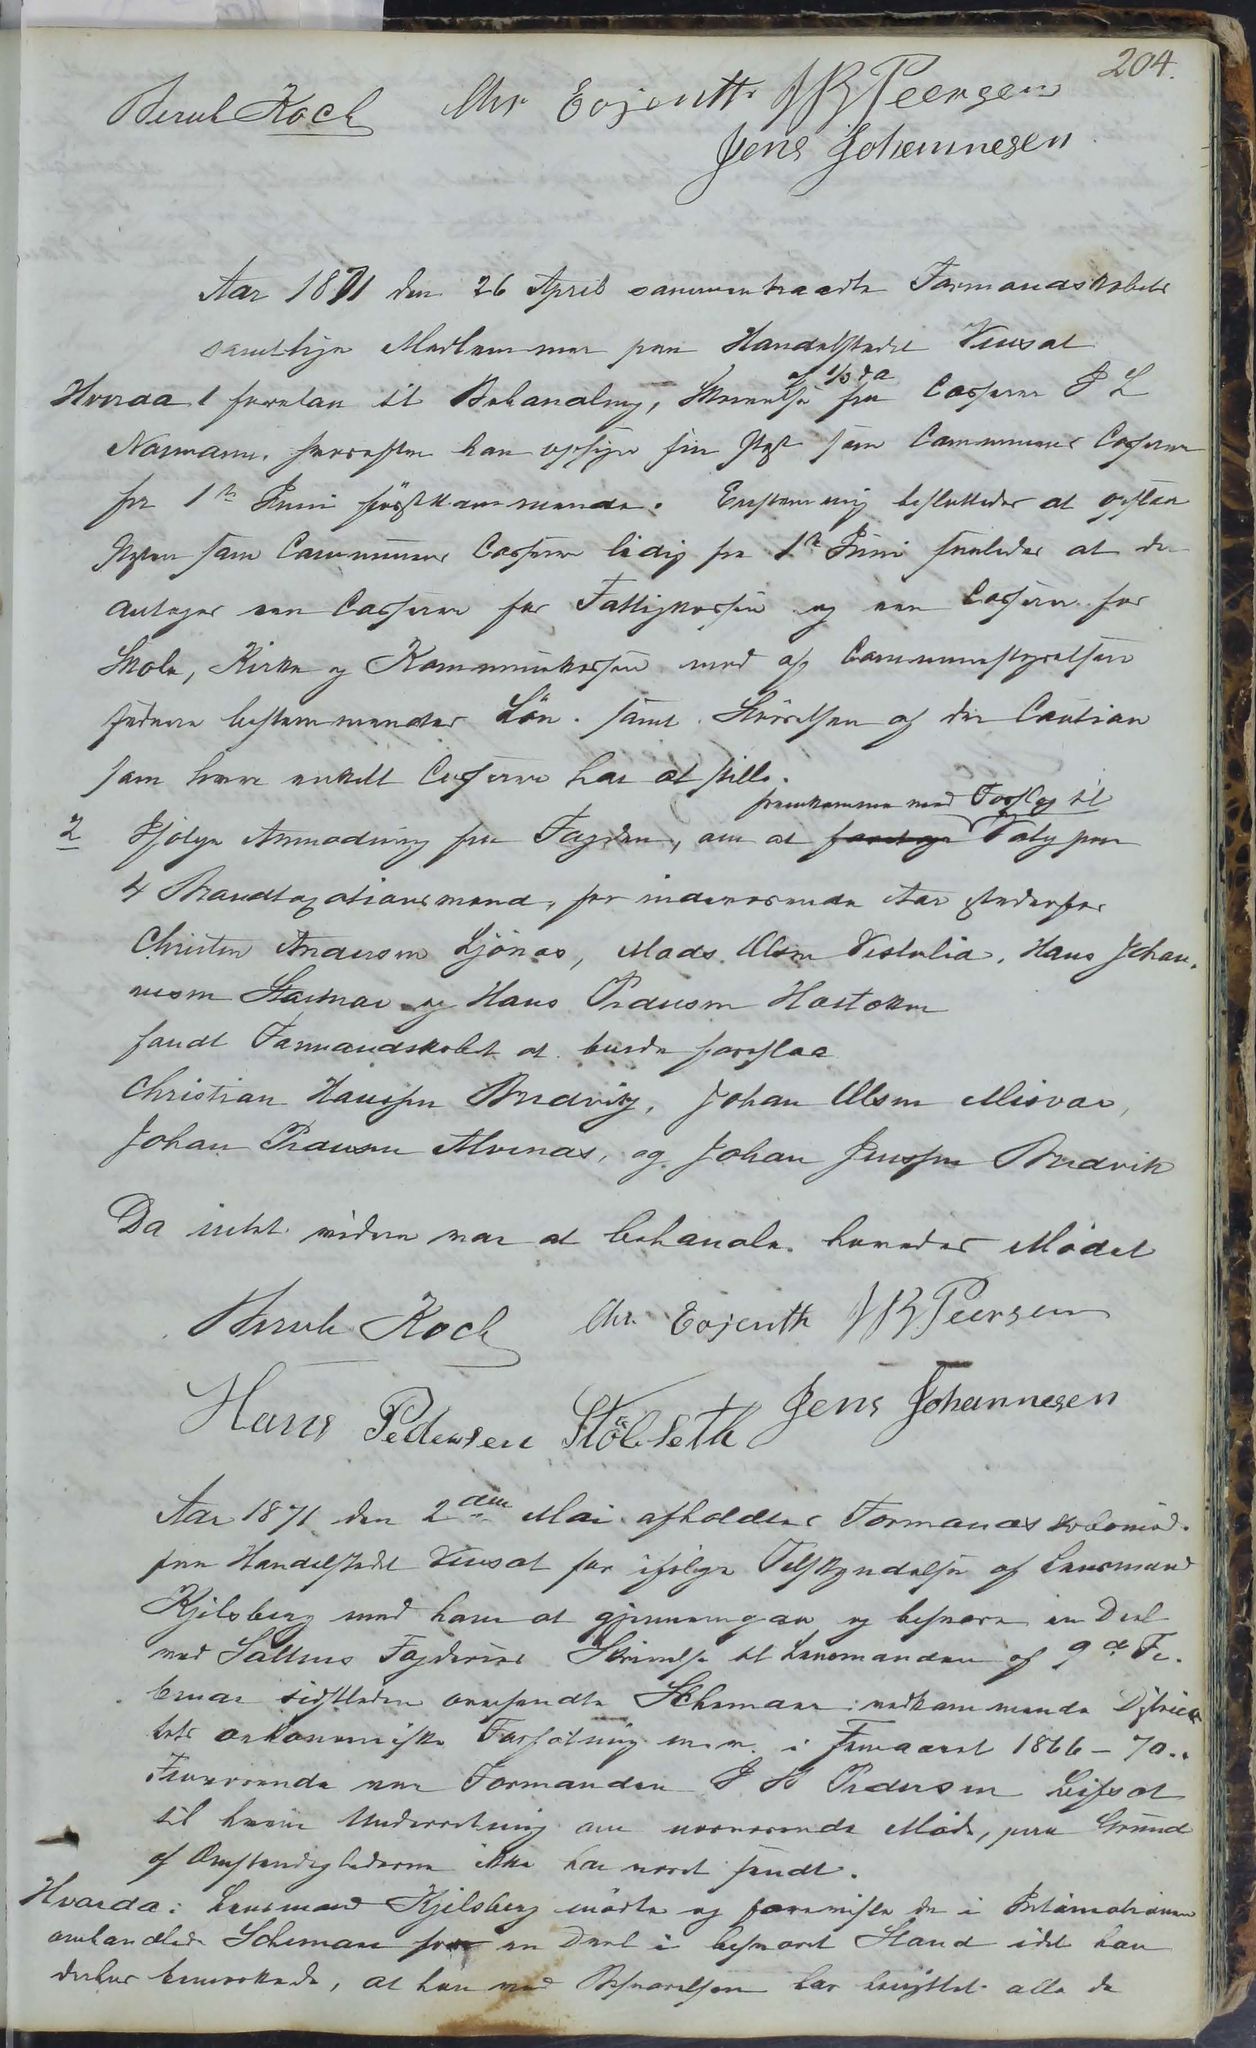 204.
Bernh Koch Chr Evjenth J B Peersen
Jens Johannesen
Aar 1871 den 26 April sammentraadte Formandskabets
samtlige Medlemmer paa Handelstedet Venset
Hvorda 1 foretan til Behandling, Skrivelse af 1/3 d a fra Casserer P L
Normann, hvorefter han opsiger sin Post som Communens Casserer
fra 1te Juni førstkommende. Enstemmig besluttedes at opslaa
Posten som Communens Casserer ledig fra 1te Juni saaledes at der
antages een Casserer for Fattigkassen og een Casserer for
Skole, Kirke og Kommunekassen med af Communestyrelsen
sednere bestemmendes Løn. samt Størrelsen af den Caution
som hver enkelt Casserer har at stille.
fremkomme med Forslag til
2 Ifølge Anmodning fra Fogden, om at foretage Valg paa
4 Brandtaxationsmænd, for indeværende Aar istedenfor
Christen Andersen Ljønæs, Mads Olsen Vestvlid, Hans Johan-
nesen og Hans Pedersen
fandt Formandskabet at burde foreslaa
Christian Hanssen Bredvig, Johan Olsen Misvær,
Johan Pedersen Alvenæs, og Johan Jenssen Bredvik
Da intet videre var at behandle hævedes Mødet
Bernh Koch Chr. Evjenth J B Peersen
Hans Pedersen Støbseth Jens Johannesen
Aar 1871 den 2den Mai afholdtes Formandskabsmød.
paa Handelstedet Venset for ifølge Tilskyndelse af Lensmand
Kjelsberg med ham at gjennemgaa og besvare en Deel
med Saltens Fogderies Skrivelse til Lensmanden af 9de Fe-
bruar sidstleden oversendte Schemaer vedkommende District
tets oekonomiske Forfatning m.v. i Femaaret 1866–70.
Fraværende var Formanden J B Pedersen
til hvem Underretning om nærværende Møde, paa Grund
af Omstændighederne ikke har været sendt.
Hvorda: Lensmand Kjelsberg mødte og foreviste de i
omhandlede Schemaer for en Deel i besvaret Stand idet han
derhos bemærkede, at han ved Besvarelsen har benyttet alle de